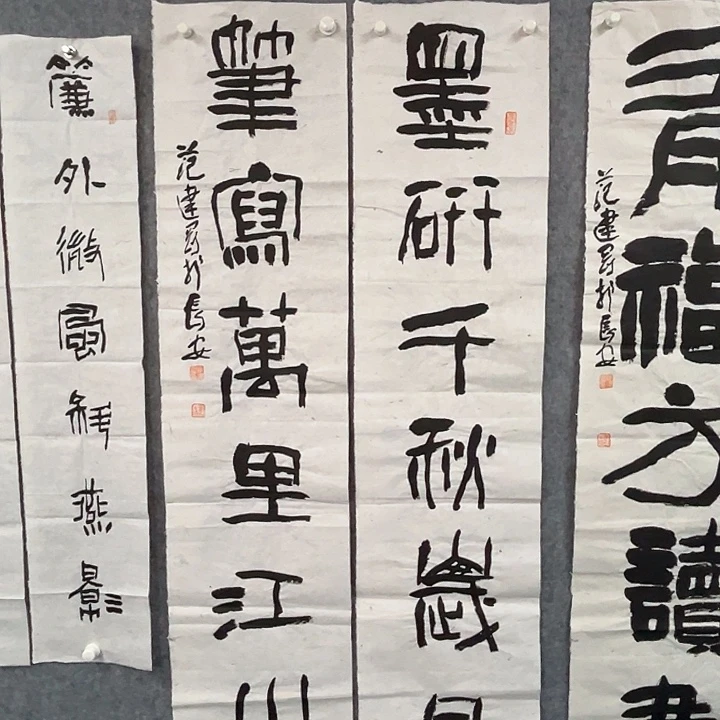 有福方讀書
范建於長安
墨研千秋歲月
筆寫萬里江山
范建於長安
簾外微風斜燕影